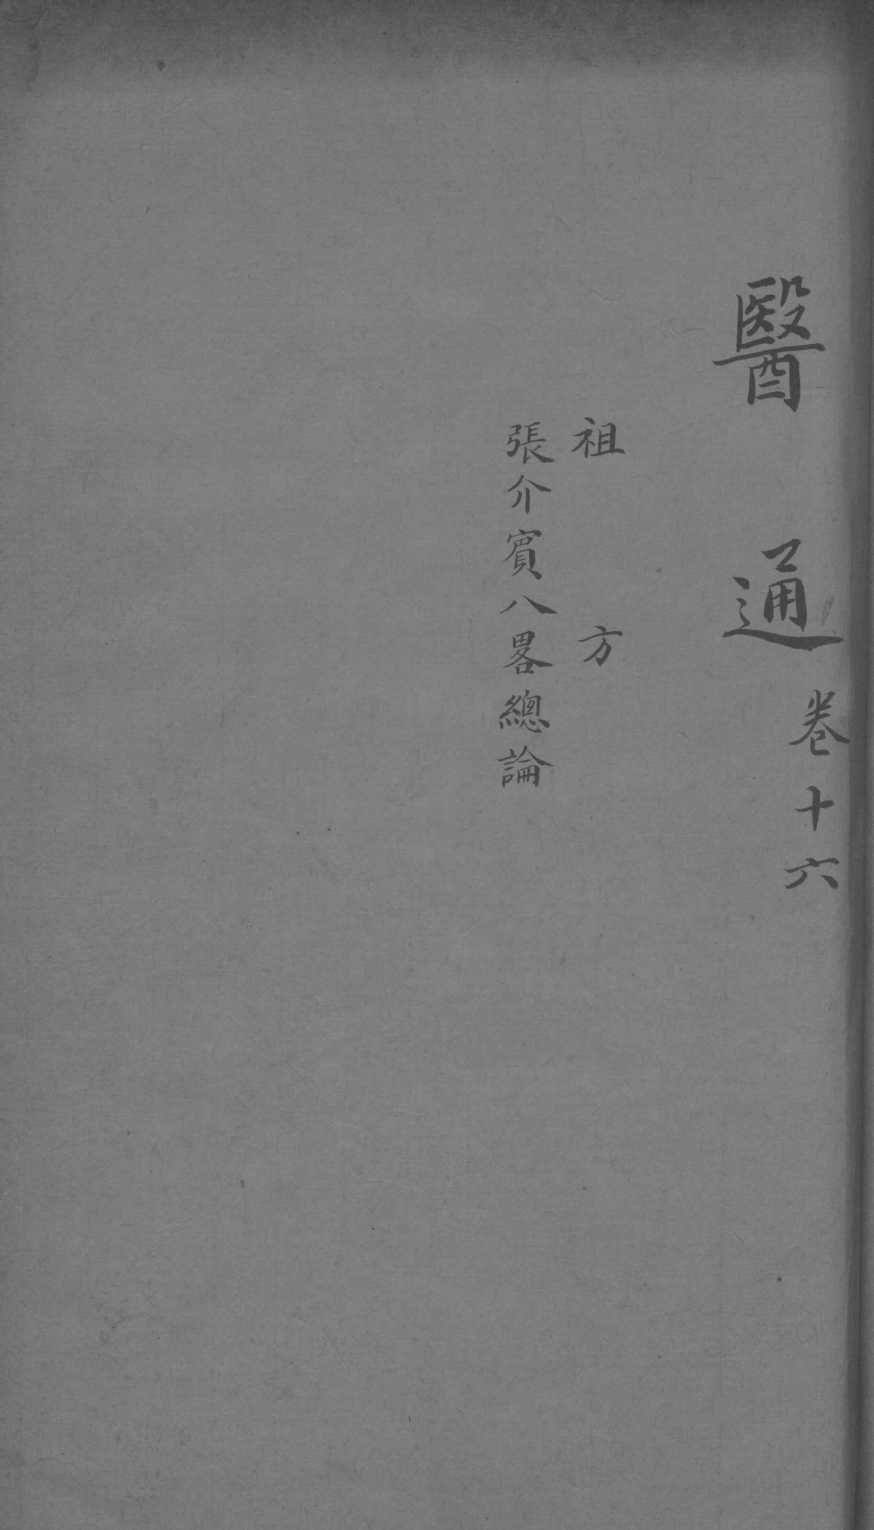 醫通卷十六
祖方
張介賔八畧總論